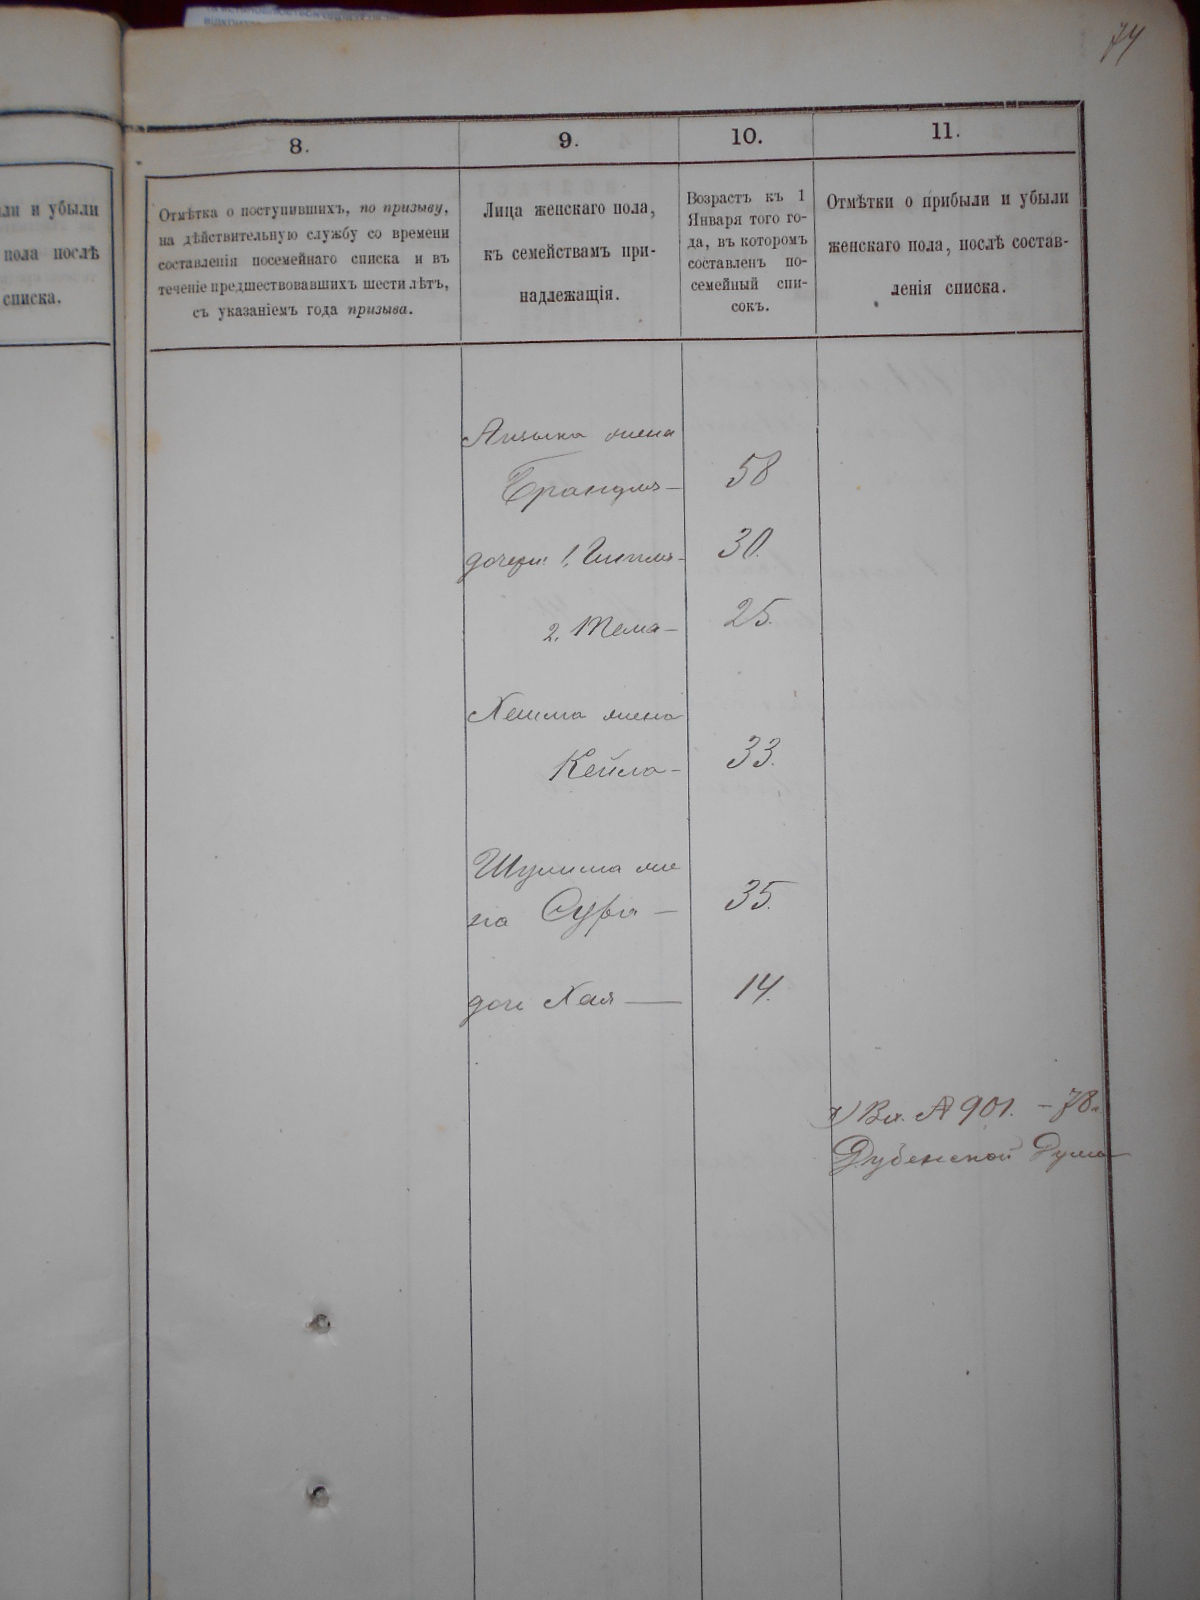 74
8.
9.
10.
11.
ли и убыли
пола послѣ
списка.
Отмѣтка о поступившихъ, по призыву,
на дѣйствительную службу со времени
составленія посемейнаго списка и въ
теченіе предшествовавшихъ шести лѣтъ,
съ указаніемъ года призыва.
Лица женскаго пола,
къ семействамъ при-
надлежащія.
Возрастъ къ 1
Января того го-
да, въ которомъ
составленъ по-
семейный спи-
сокъ.
Отмѣтки о прибыли и убыли
женскаго пола, послѣ состав-
ленія списка.
жена
58
дочери: 1.
30.
2. Тема
25.
жена
Кейла
33.
Шулима же
на Сура
35.
доч Хая
14.
901. - 78
Дубенской Думы